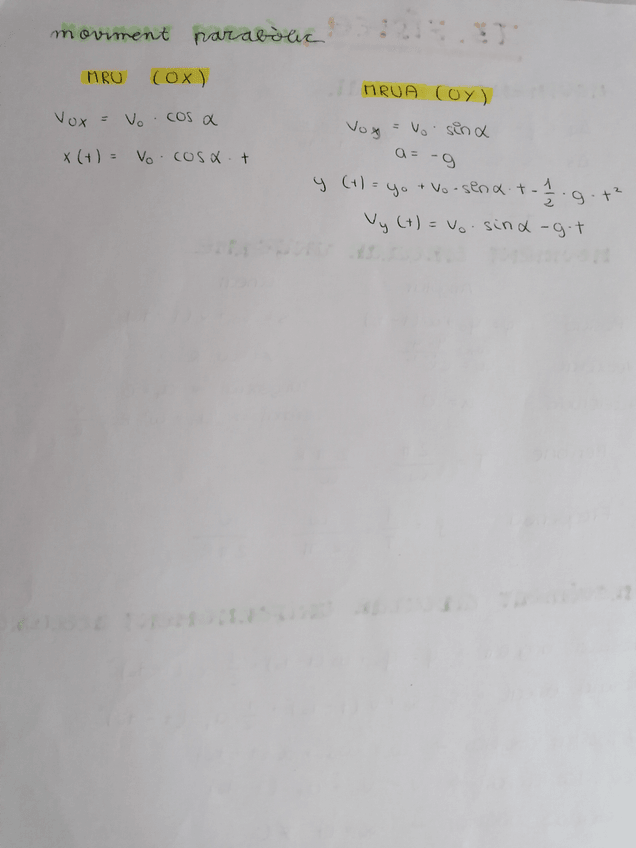 moviment parabòlic
MRU (OX)
Vox = Vo · cos α
x(t) = Vo · cos α · t
MRUA (OY)
Voy = Vo · sin α
a = -g
y (t) = yo + Vo · sen α · t - 1/2 · g · t²
Vy (t) = Vo · sin α - g · t